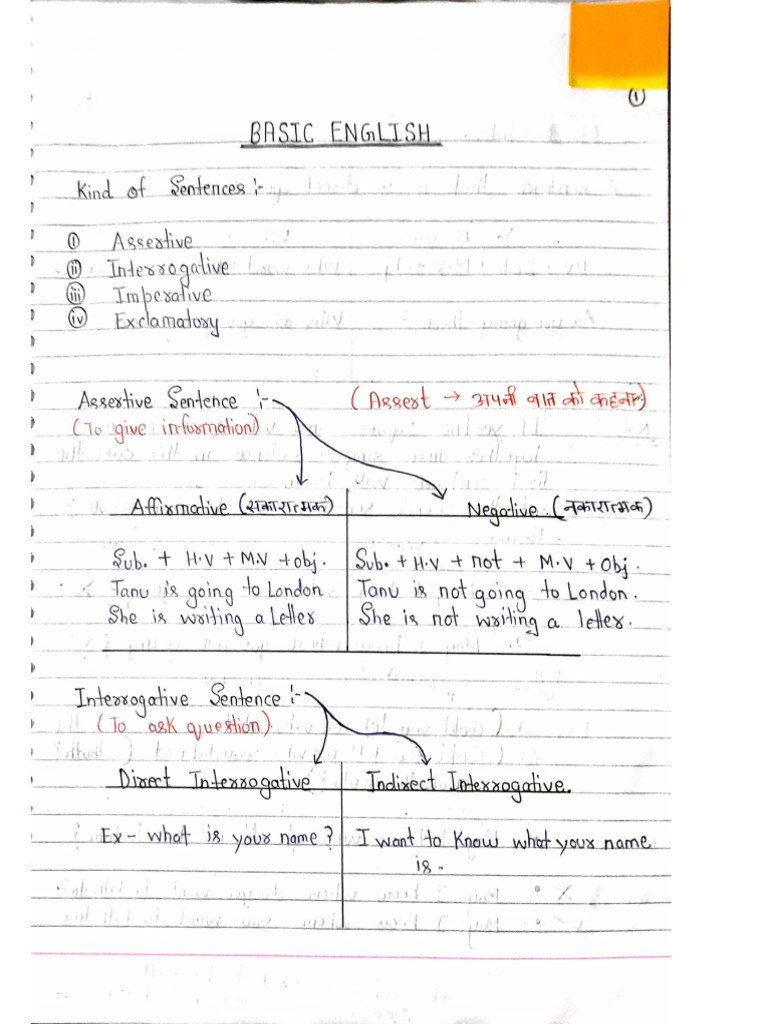 ①
BASIC ENGLISH
Kind of Sentences :-
① Assertive
ⓘⓘ Interrogative
ⓘⓘⓘ Imperative
ⓘⓥ Exclamatory
Assertive Sentence :- (Assert → अपनी बात को कहना)
(To give information)
Affirmative (सकारात्मक) Negative. (नकारात्मक)
Sub. + H.V + M.V + obj. Sub. + H.V + not + M.V + Obj.
Tanu is going to London Tanu is not going to London.
She is writing a Letter She is not writing a letter.
Interrogative Sentence :-
(To ask question).
Direct Interrogative Indirect Interrogative.
Ex - what is your name? I want to know what your name
is.